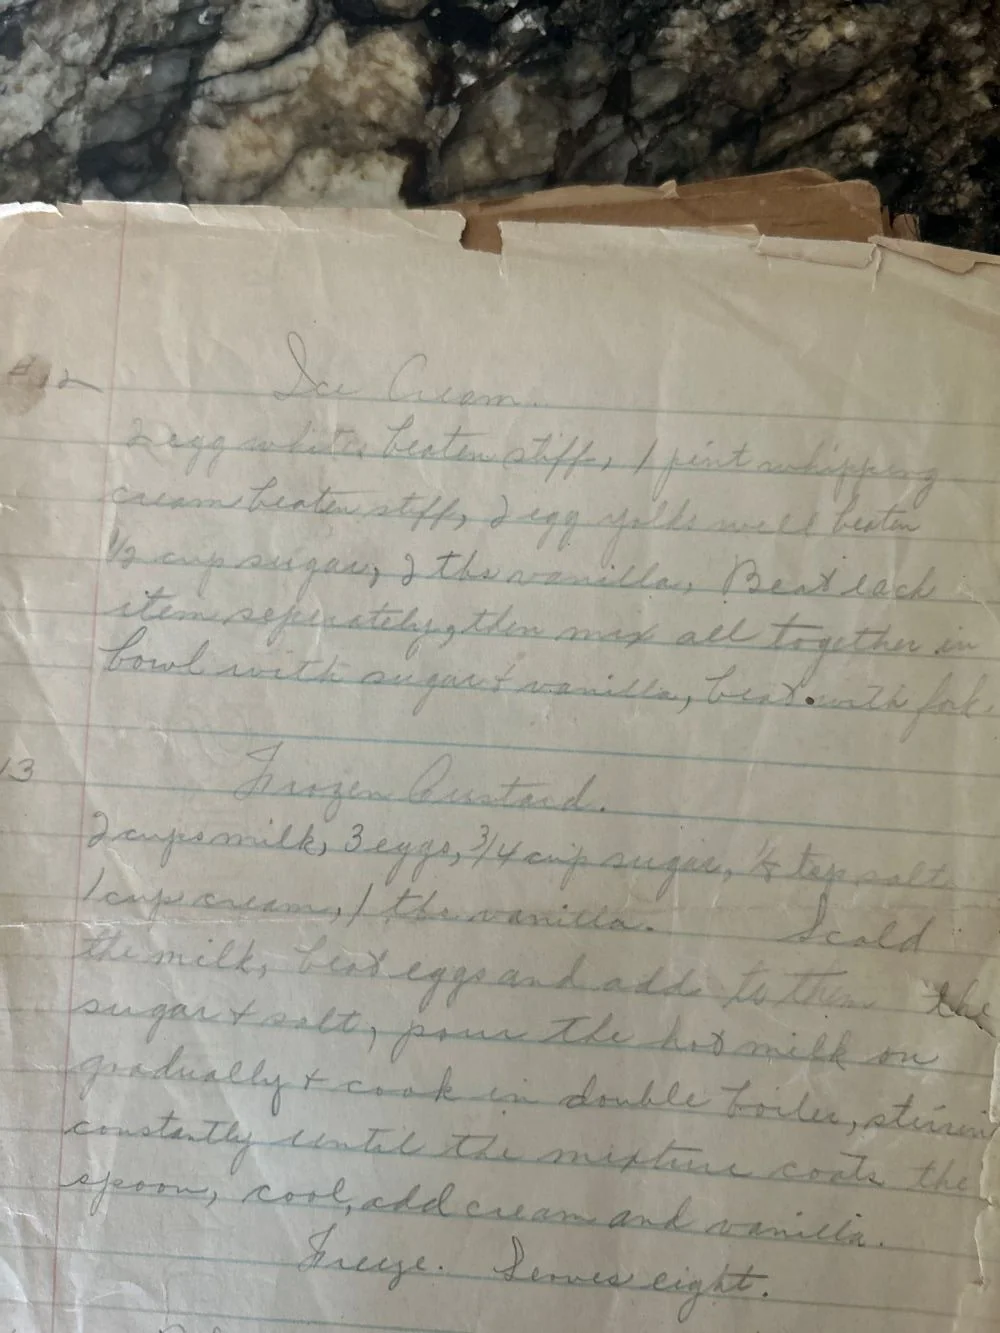 #12 Ice Cream.
2 egg whites beaten stiff, 1 pint whipping
cream beaten stiff, 2 egg yolks well beaten
1/2 cup sugar, 2 tbs vanilla, Beat each
item seperately, then mix all together in
bowl with sugar & vanilla, beat with fork.
13 Frozen Custard.
2 cups milk, 3 eggs, 3/4 cup sugar, tsp salt
1 cup cream, 1 tbs vanilla. Scald
the milk, beat eggs and add to them the
sugar & salt, pour the hot milk on
gradually & cook in double boiler, stirring
constantly until the mixture coats the
spoon, cool, add cream and vanilla.
Freeze. Serves eight.